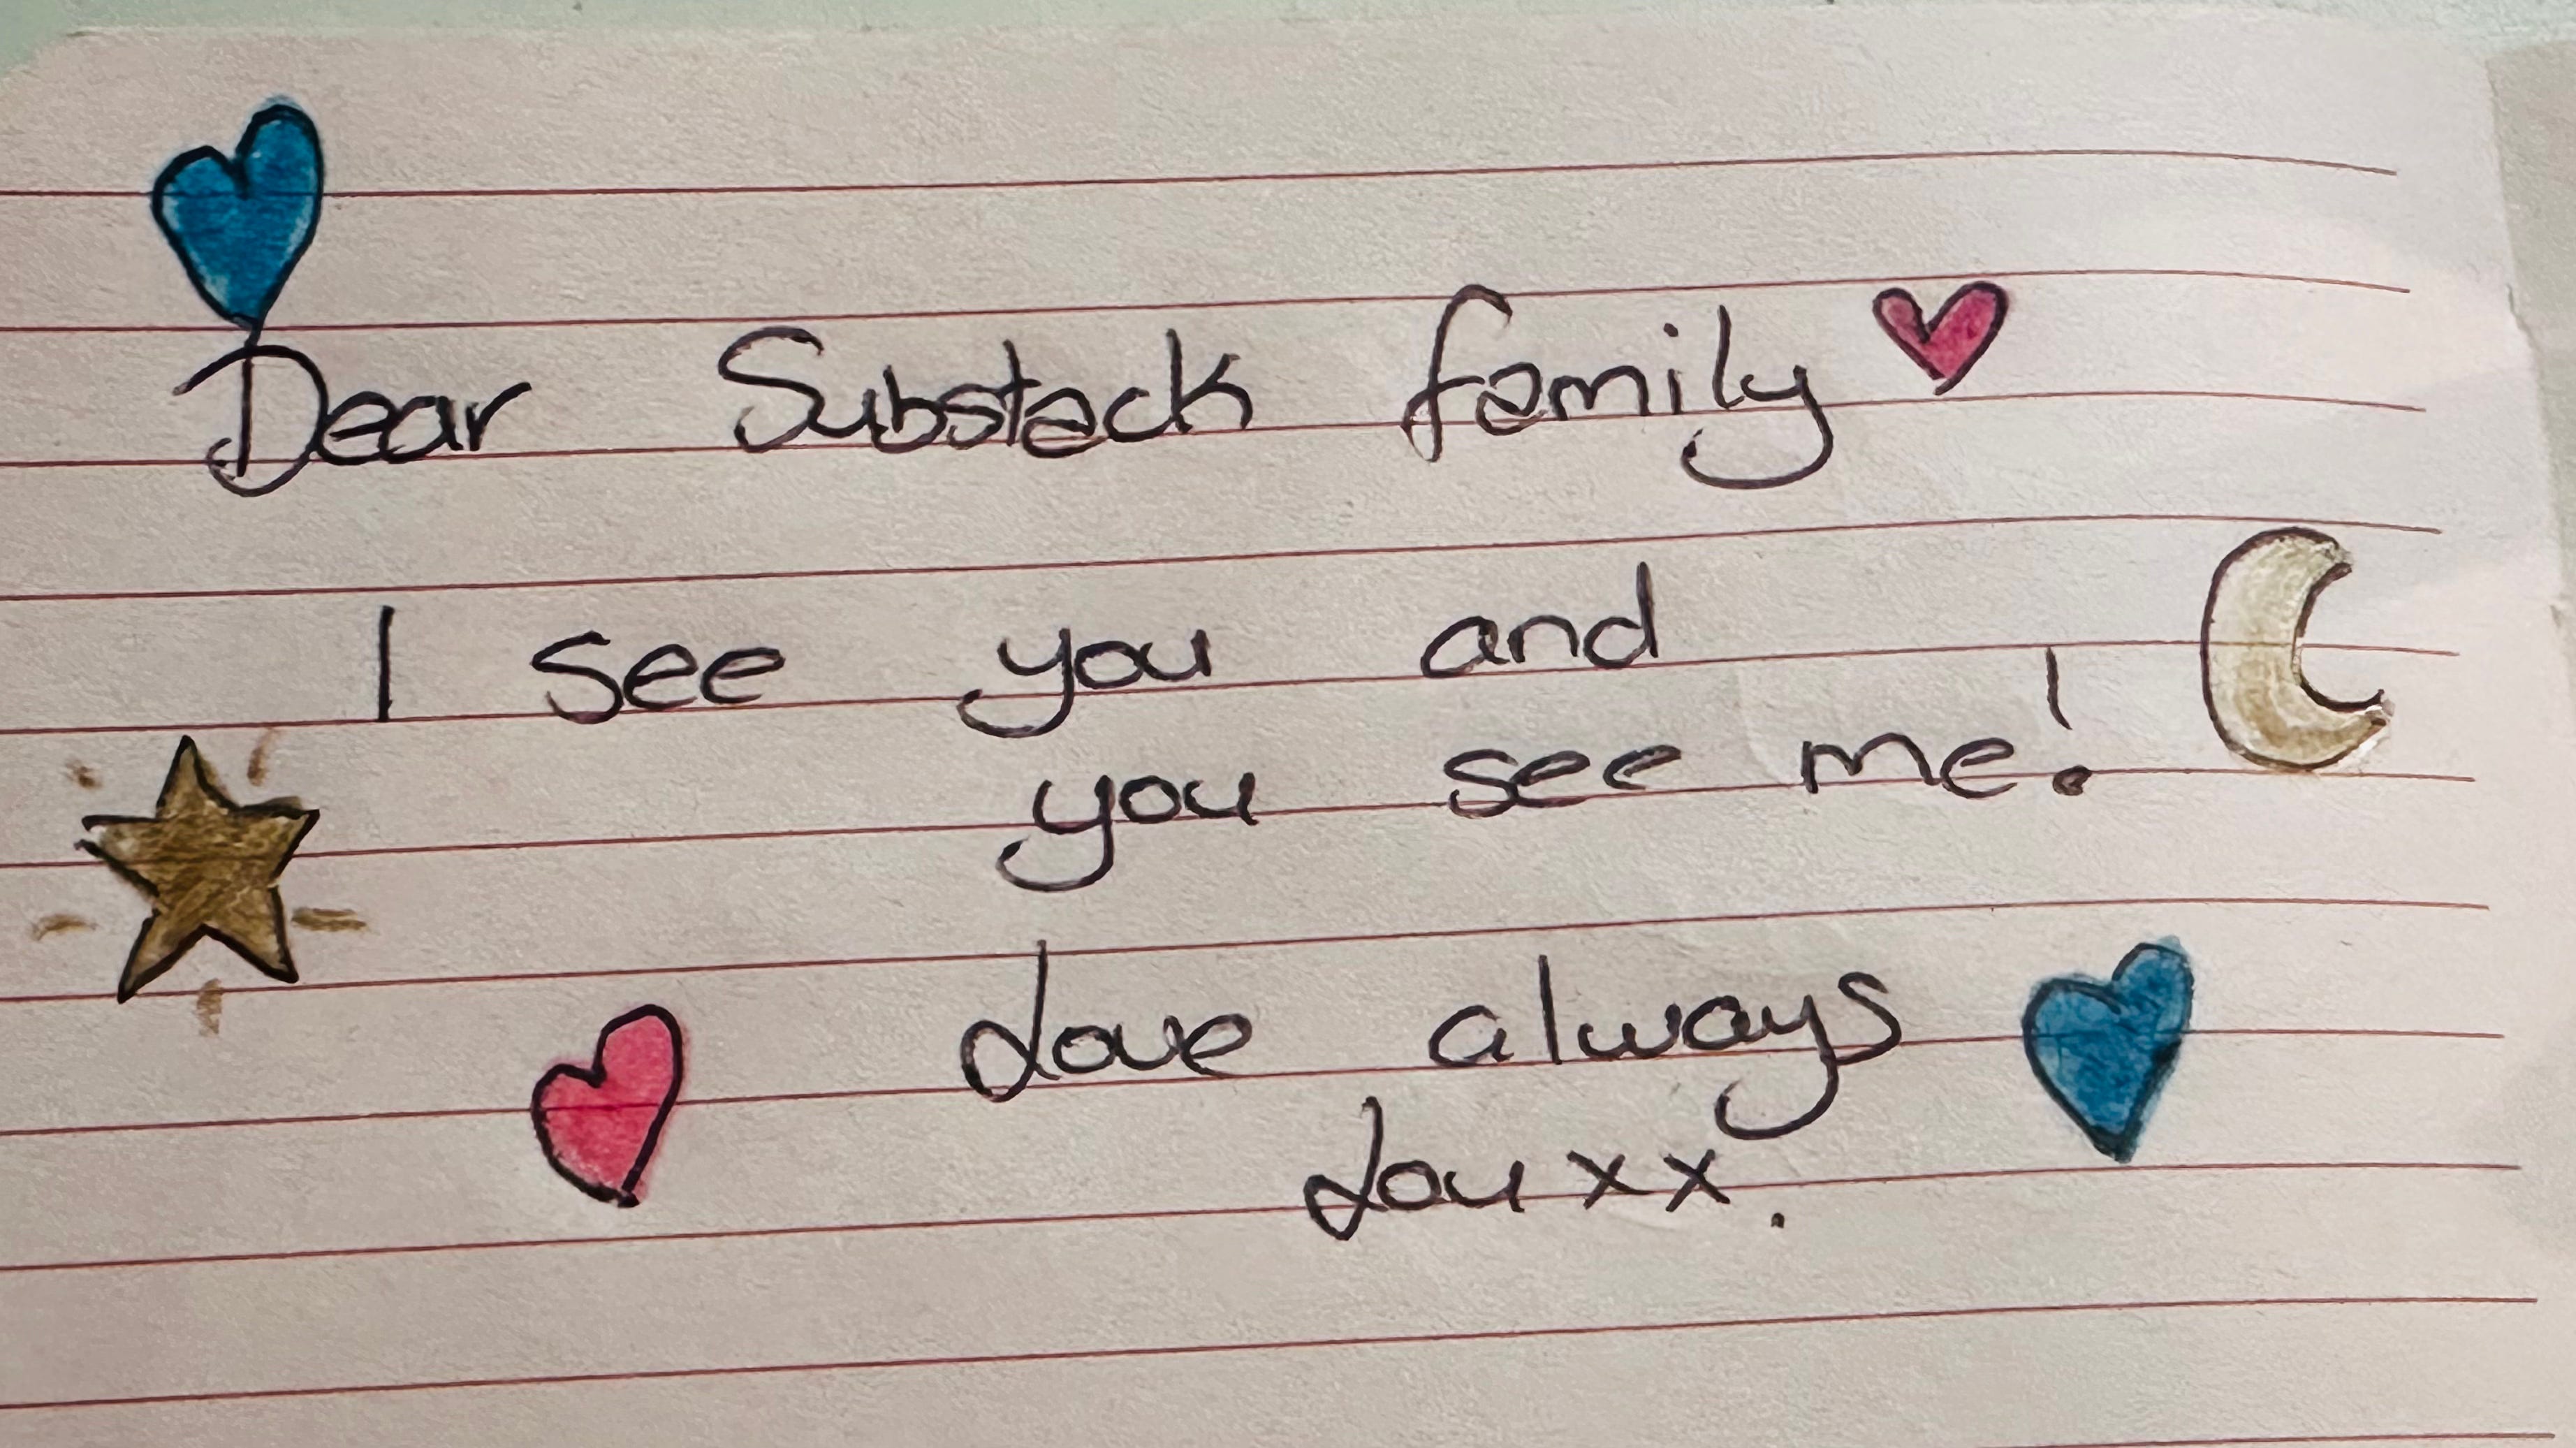 Dear Substack family
I see you and
you see me!
Love always
Lou xx.